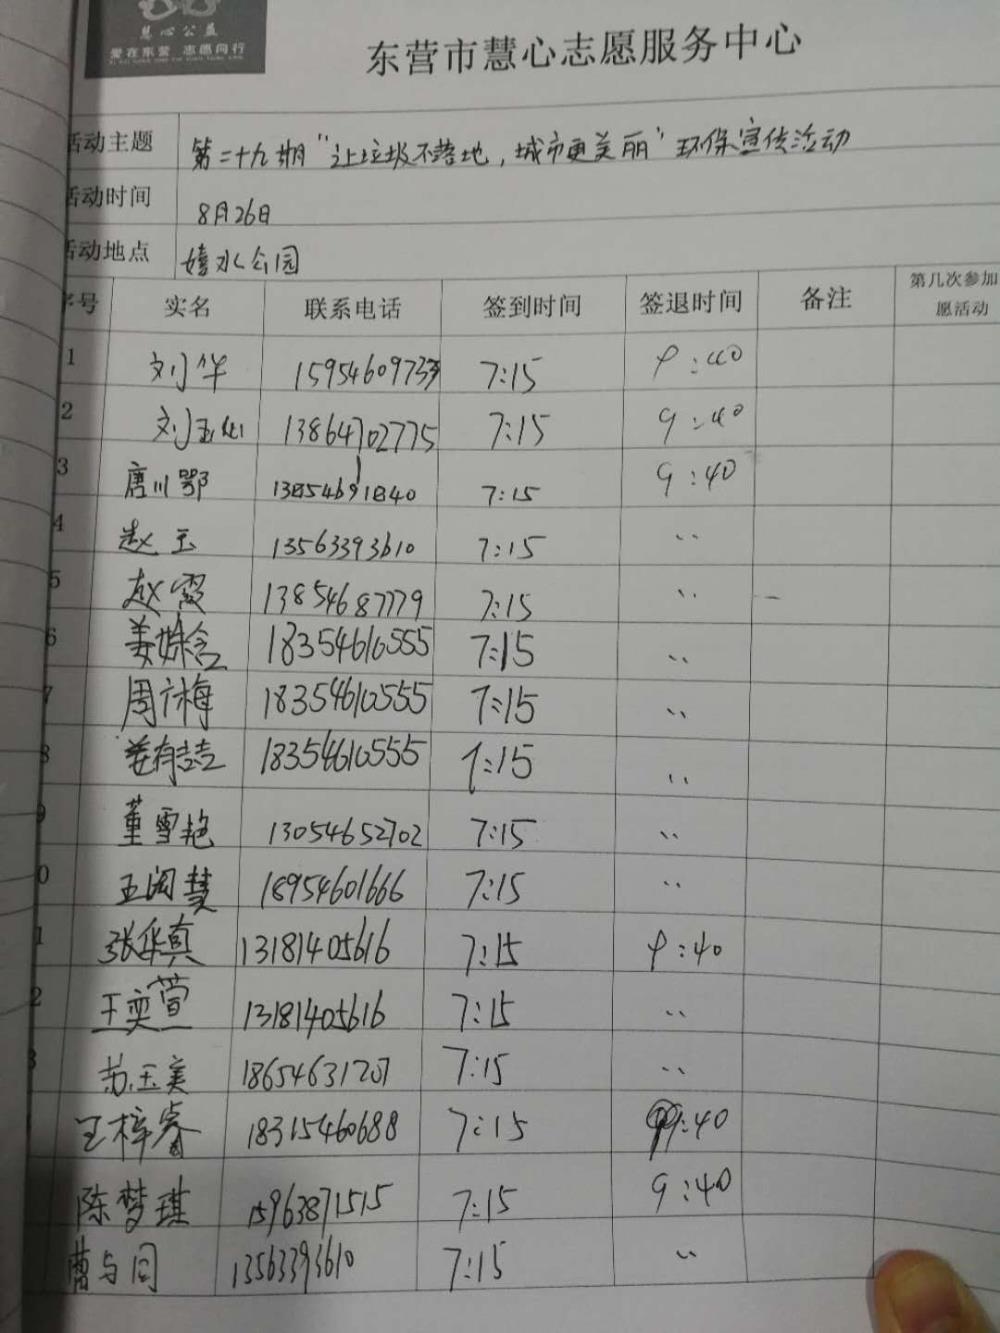 慧心公益
爱在东营 志愿同行
东营市慧心志愿服务中心
活动主题 第二十九期"让垃圾不落地,城市更美丽"环保宣传活动
活动时间 8月26日
活动地点 嬉水公园
序号 实名 联系电话 签到时间 签退时间 备注 第几次参加
愿活动
1 刘华 15954609737 7:15 9:40
2 刘玉仙 13864702775 7:15 9:40
3 唐川鄂 13854691840 7:15 9:40
4 赵玉 13563393610 7:15 〃
5 赵霞 13854687779 7:15 〃
6 姜姝含 18354610555 7:15 〃
7 周广梅 18354610555 7:15 〃
8 姜有喆 18354610555 7:15 〃
9 董雪艳 13054652702 7:15 〃
0 王闵慧 18954601666 7:15 〃
1 张华真 13181405616 7:15 9:40
2 王奕萱 13181405616 7:15 〃
3 苏玉美 18654631207 7:15 〃
王梓睿 18315460688 7:15 9:40
陈梦琪 15963871515 7:15 9:40
曹与同 13563393610 7:15 〃